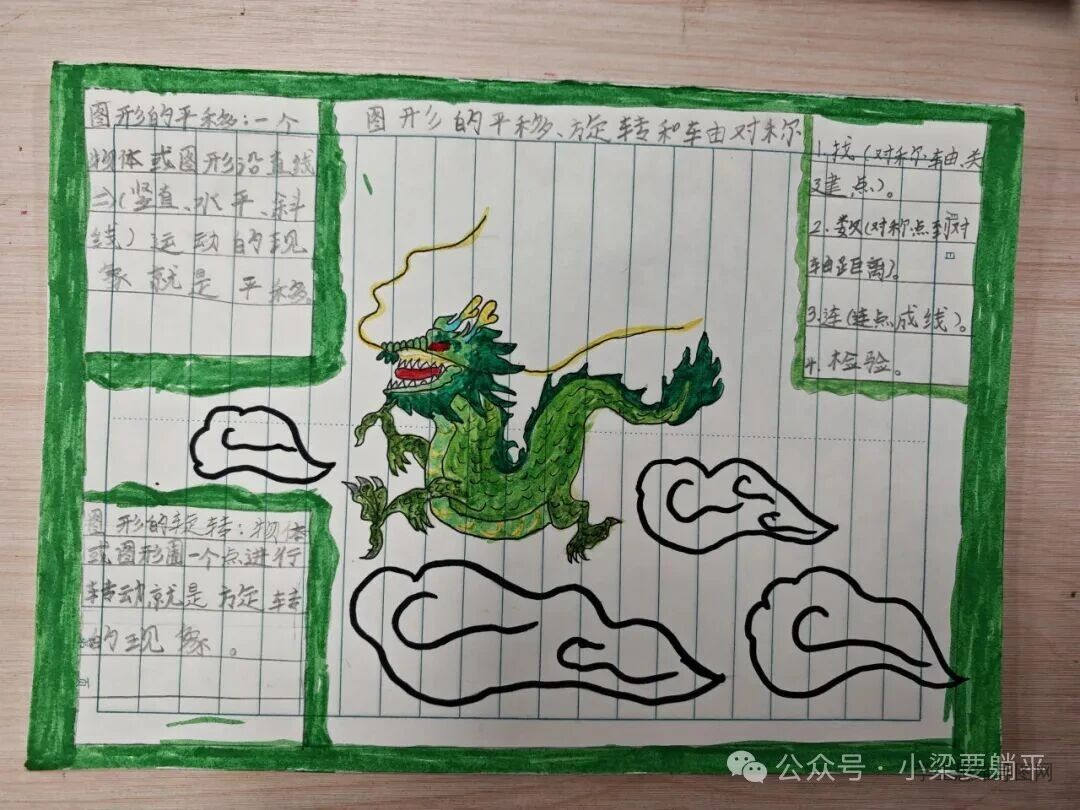 图形的平移、旋转和轴对称
图形的平移:一个
物体或图形沿直线
(竖直、水平、斜
线)运动的现
象就是平移。
1.找(对称轴、关
键点)。
2.数(对称点到对
轴距离)。
3.连(连点成线)。
4.检验。
图形的旋转:物体
或图形围一个点进行
转动就是旋转
的现象。
公众号·小梁要躺平